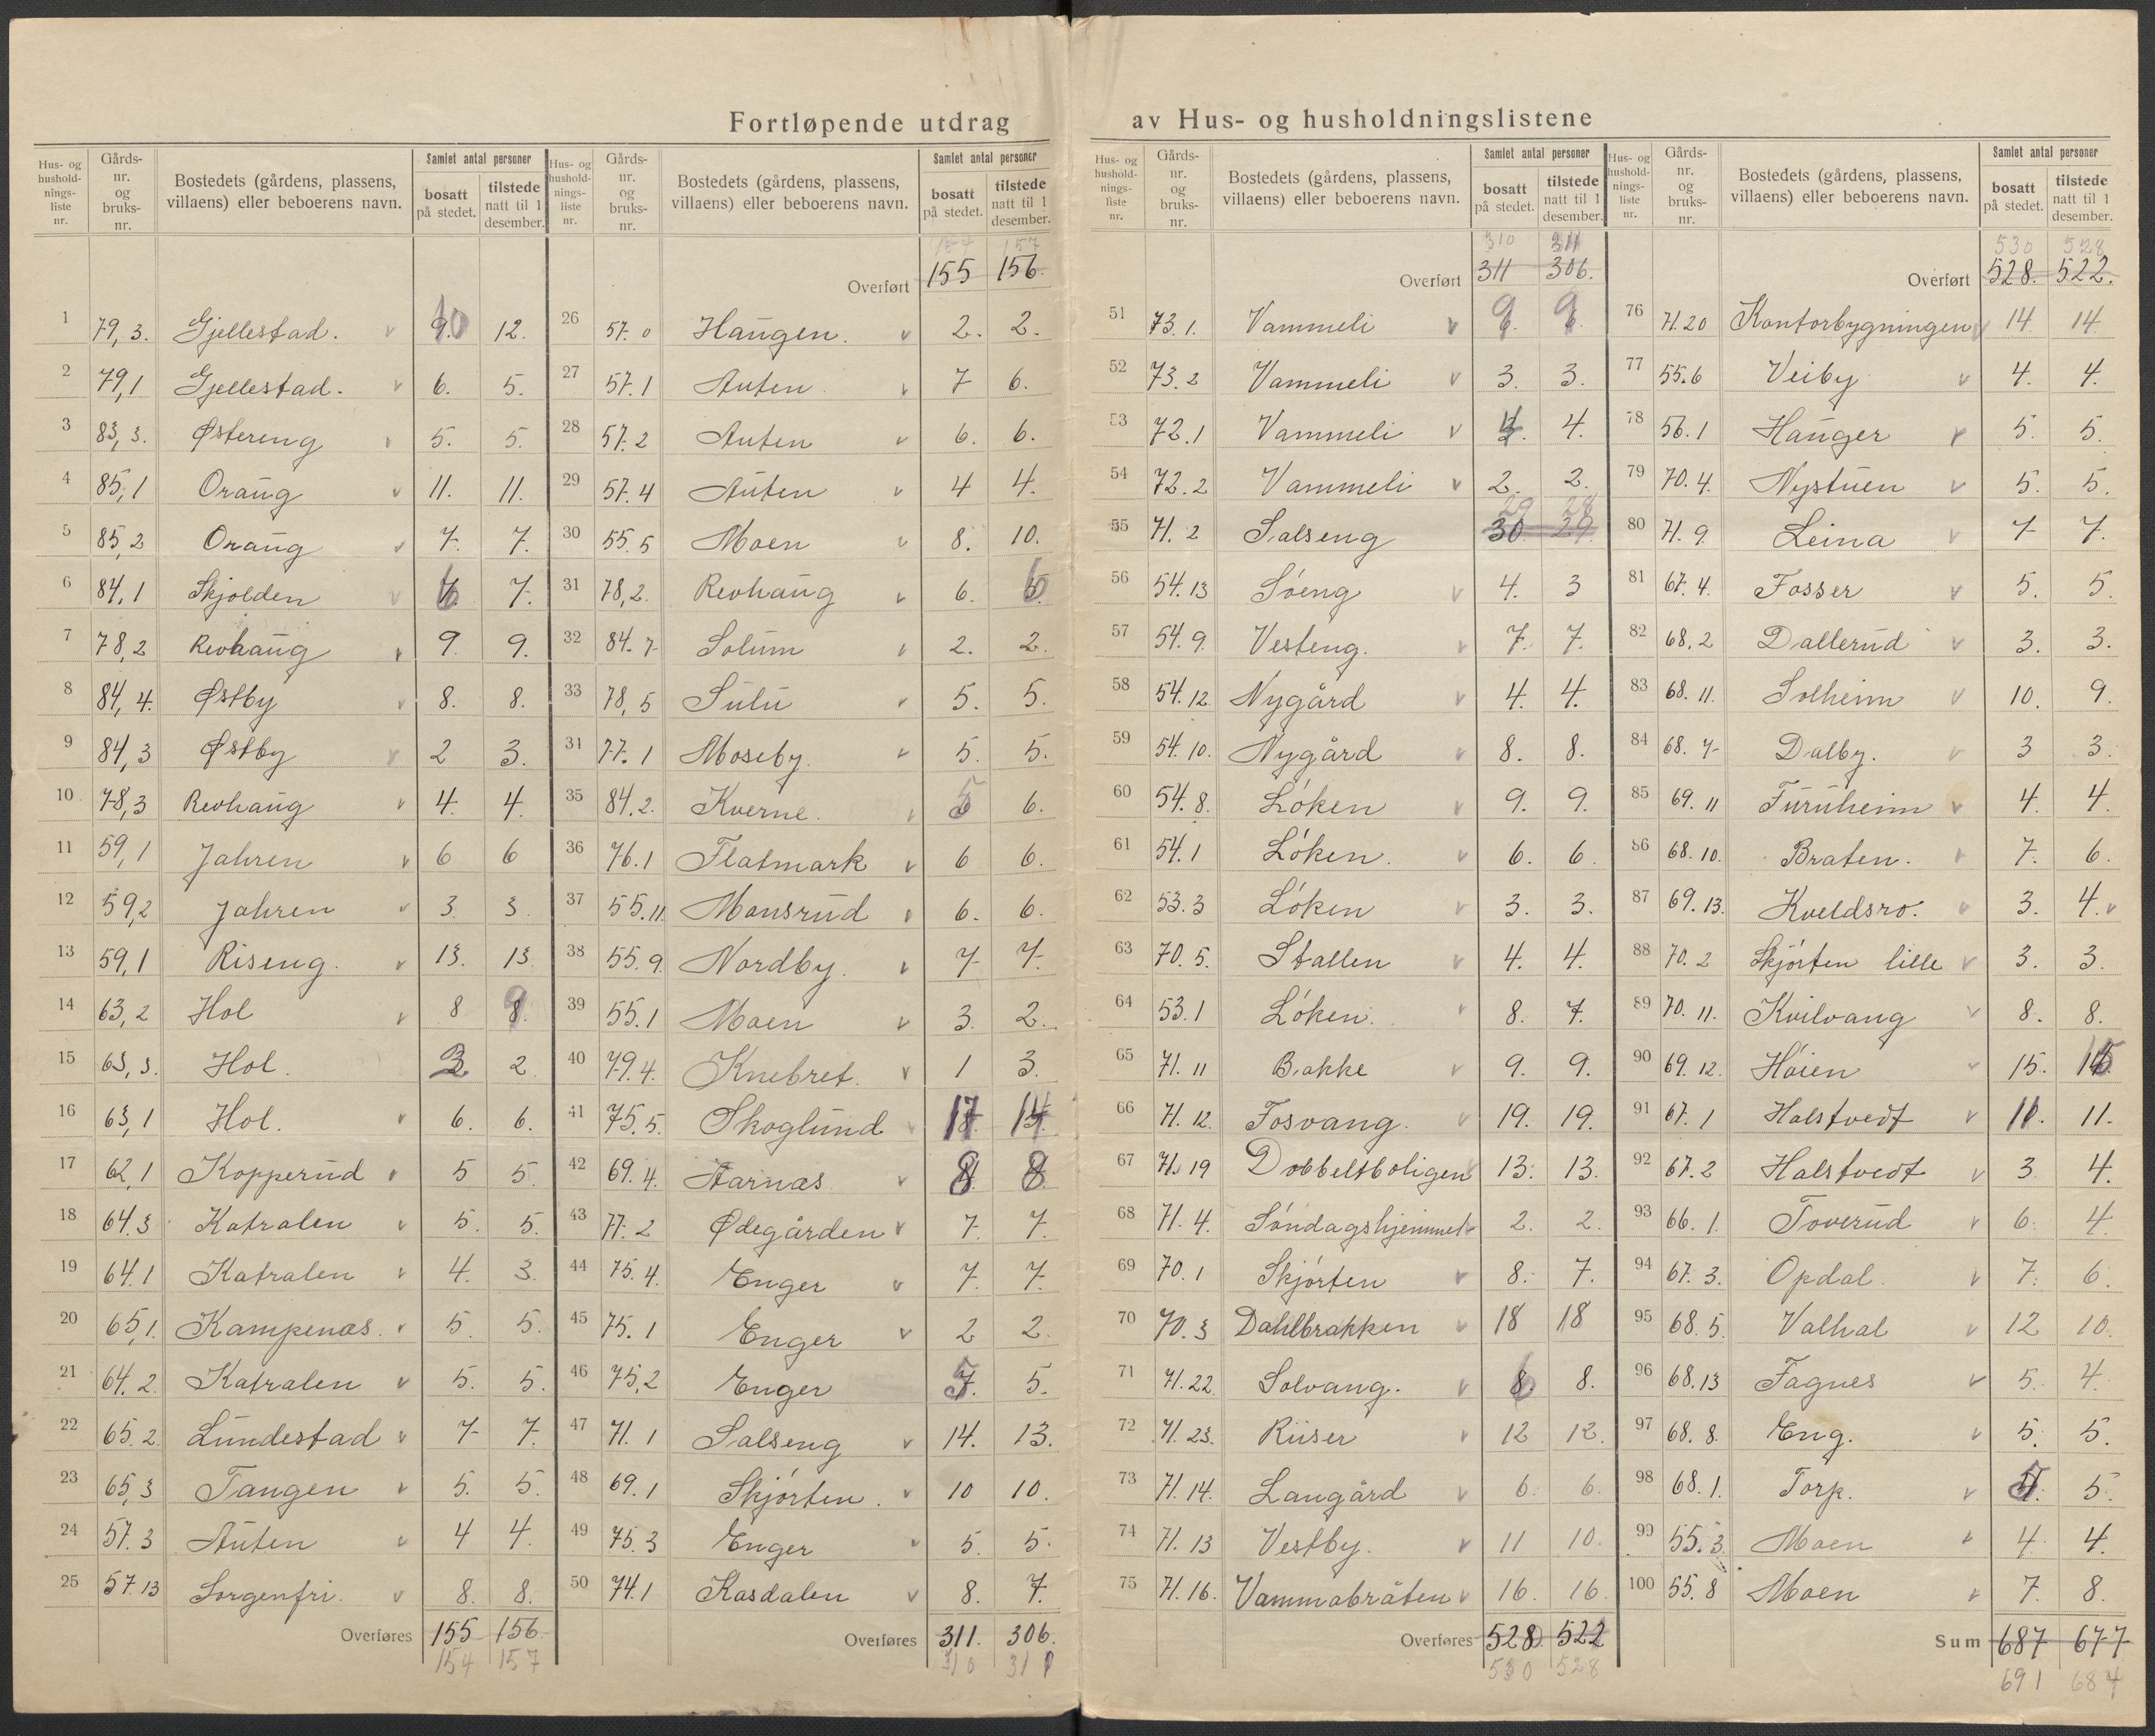 Fortløpende utdrag av Hus- og husholdningslistene
Hus- og hushold-nings-liste nr. Gårds-nr. og bruks-nr. Bostedets (gårdens, plassens, villaens) eller beboerens navn. Samlet antal personer bosatt på stedet. tilstede natt til 1 desember.
1 79,3. Gjellestad. 10 12.
2 79,1 Gjellestad. 6. 5.
3 83,3. Østereng 5. 5.
4 85,1 Oraug 11. 11.
5 85,2 Oraug 7. 7.
6 84,1 Skjolden 6 7.
7 78,2 Revhaug 9. 9.
8 84,4. Østby 8. 8.
9 84,3 Østby 2 3.
10 78,3 Revhaug 4. 4.
11 59,1 Jahren 6 6
12 59,2 Jahren 3. 3.
13 59,1 Riseng. 13. 13
14 63,2 Hol 8 9
15 63,3. Hol. 2
16 63,1 Hol. 6. 6.
17 62,1 Kopperud 5 5.
18 64.3 Katralen 5. 5.
19 64.1 Katralen 4. 3.
20 65,1. Kampenæs. 5. 5.
21 64.2. Katralen 5. 5.
22 65.2 Lundestad 7 7.
23 65,3 Tangen 5. 5.
24 57.3 Auten 4 4.
25 57.13 Sorgenfri. 8. 8.
Overføres 155 156
154 157
Hus- og hushold-nings-liste nr. Gårds-nr. og bruks-nr. Bostedets (gårdens, plassens, villaens) eller beboerens navn. Samlet antal personer bosatt på stedet. tilstede natt til 1 desember.
154 157
Overført 155 156.
26 57.0 Haugen. 2. 2.
27 57.1 Auten 7 6.
28 57.2 Auten 6. 6.
29 57.4 Auten 4 4.
30 55.5 Moen 8. 10.
31 78,2. Revhaug 6. 6
32 84.7 Solum 2. 2.
33 78,5 Sulu 5. 5.
34 77.1 Moseby. 5. 5.
35 84,2. Kverne. 5 6.
36 76.1 Flatmark 6 6.
37 55.11 Monsrud 6. 6.
38 55.9. Nordby. 7 7.
39 55.1 Moen 3. 2.
40 79.4. Knebret. 1 3.
41 75.5. Skoglund 17 14
42 69.4. Aarnæs 8 8
43 77.2 Ødegården 7. 7.
44 75.4. Enger 7. 7.
45 75.1 Enger 2 2.
46 75,2 Enger 5 5.
47 71.1 Salseng 14. 13.
48 69.1 Skjørten. 10 10.
49 75.3 Enger 5. 5.
50 74.1 Kasdalen 8. 7.
Overføres 311. 306.
310 311
Hus- og hushold-nings-liste nr. Gårds-nr. og bruks-nr. Bostedets (gårdens, plassens, villaens) eller beboerens navn. Samlet antal personer bosatt på stedet. tilstede natt til 1 desember.
310 311
Overført 311 306.
51 73.1. Vammeli 9 9
52 73.2 Vammeli 3. 3.
53 72.1 Vammeli 4 4.
54 72.2 Vammeli 2. 2.
29 28
55 71.2 Salseng 30 29.
56 54.13 Soeng 4. 3
57 54.9. Vesteng. 7. 7.
58 54.12 Nygård 4. 4.
59 54.10. Nygård 8. 8.
60 54.8. Løken 9. 9.
61 54.1 Løken. 6. 6.
62 53.3 Løken 3. 3.
63 70.5. Stallen 4. 4.
64 53.1 Løken. 8. 7.
65 71.11 Bakke 9. 9.
66 71.12. Fosvang. 19. 19.
67 71.19 Dobbeltboligen 13. 13.
68 71.4. Søndagshjemmet 2. 2.
69 70.1 Skjørten 8. 7.
70 70.3 Dahlbrakken 18 18
71 71.22 Solvang. 6 8.
72 71.23. Riiser 12 12.
73 71.14. Langård 6. 6.
74 71.13 Vestby. 11 10.
75 71.16. Vammabråten 16. 16.
Overføres 528 522
530 528
Hus- og hushold-nings-liste nr. Gårds-nr. og bruks-nr. Bostedets (gårdens, plassens, villaens) eller beboerens navn. Samlet antal personer bosatt på stedet. tilstede natt til 1 desember.
530 528
Overført 528. 522.
76 71.20 Kontorbygningen 14. 14.
77 55.6 Veiby 4. 4.
78 56.1 Hauger 5. 5.
79 70.4. Nystuen 5. 5.
80 71.9. Leina 7 7.
81 67.4. Fosser 5. 5.
82 68.2 Dallerud 3. 3.
83 68.11. Solheim 10. 9.
84 68.7 Dalby. 3 3.
85 69.11 Furuheim 4. 4.
86 68.10. Braten. 7. 6.
87 69.13. Kveldsro. 3. 4.
88 70.2 Skjørten lille 3. 3.
89 70.11. Kvilvang 8. 8.
90 69.12. Høien 15. 15
91 67.1 Halstvedt 11. 11.
92 67.2 Halstvedt 3 4.
93 66.1. Toverud 6. 4.
94 67.3. Opdal. 7. 6.
95 68.5. Valhal 12 10.
96 68.13 Fagnes 5. 4.
97 68.8. Eng. 5. 5.
98 68.1. Torp. 5.
99 55.3 Moen 4. 4.
100 55.8 Moen 7. 8.
Sum 687 677
691 684